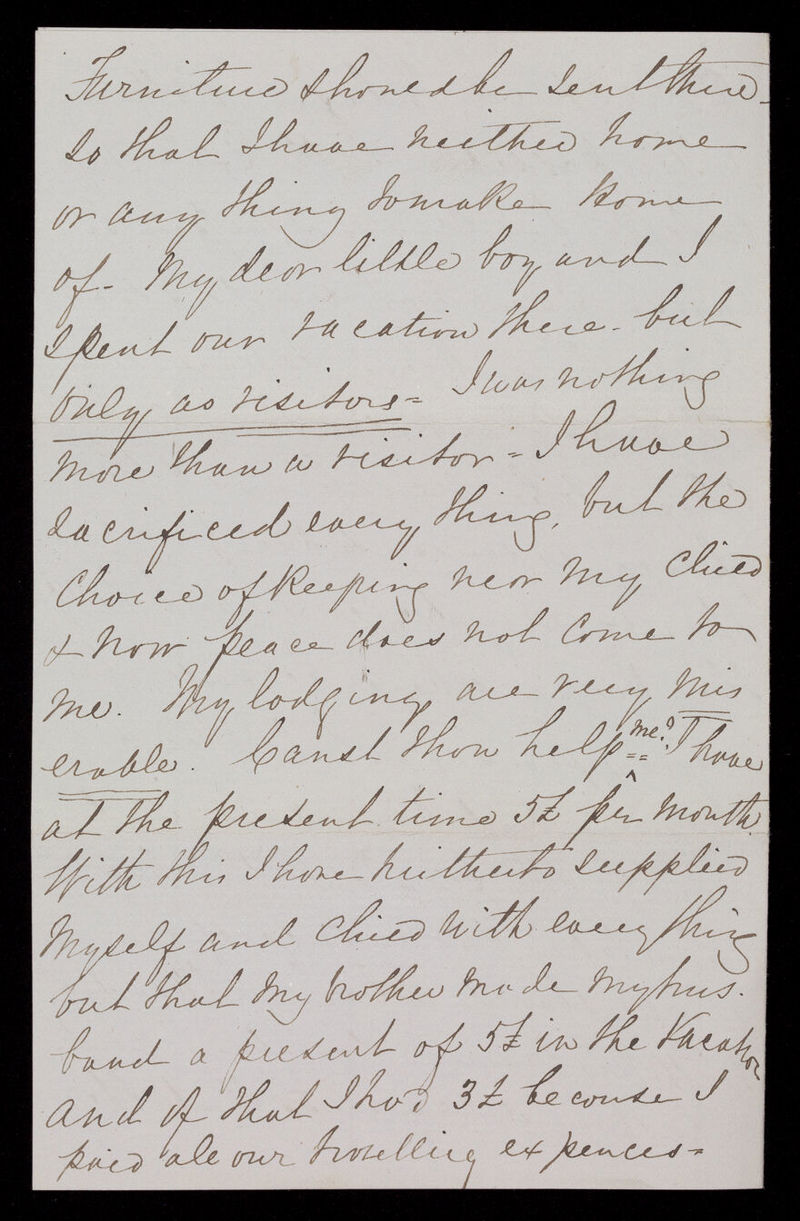 Furniture should be sent there -
so that I have neither home
or any thing to make home
of - My dear little boy and I
spent our vacation there - but
only as visitors = I was nothing
more than a visitor = I have
sacrificed every thing, but the
Choice of keeping near my Child
& now peace does not come to
me. My lodging are very mis
erable. Canst thou help me? I have
at the present time 5£ per month
With this I have hitherto supplied
Myself and Child with every thing
but that my brother made my hus-
band a present of 5£ in the Vacation
and of that I had 3£ because I
paid all our travelling expences =